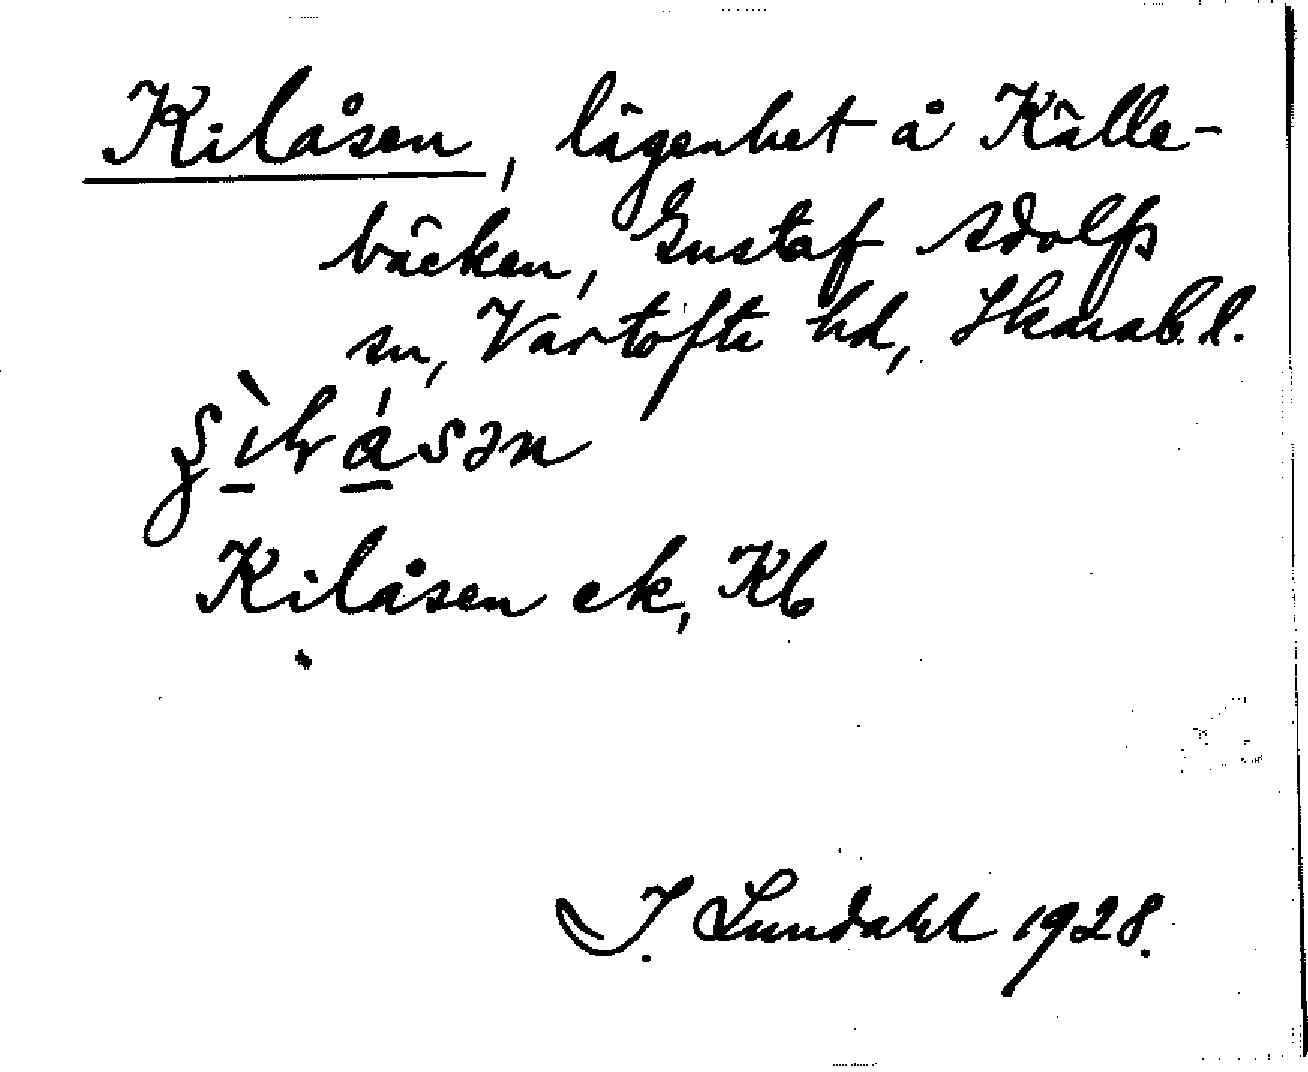 Kilåsen, lägenhet å Källe-
bäcken, Gustaf Adolfs
sn, Vartofte hd, Skarab. l.
Kilåsen ek, Kb
I. Lundahl 1928.